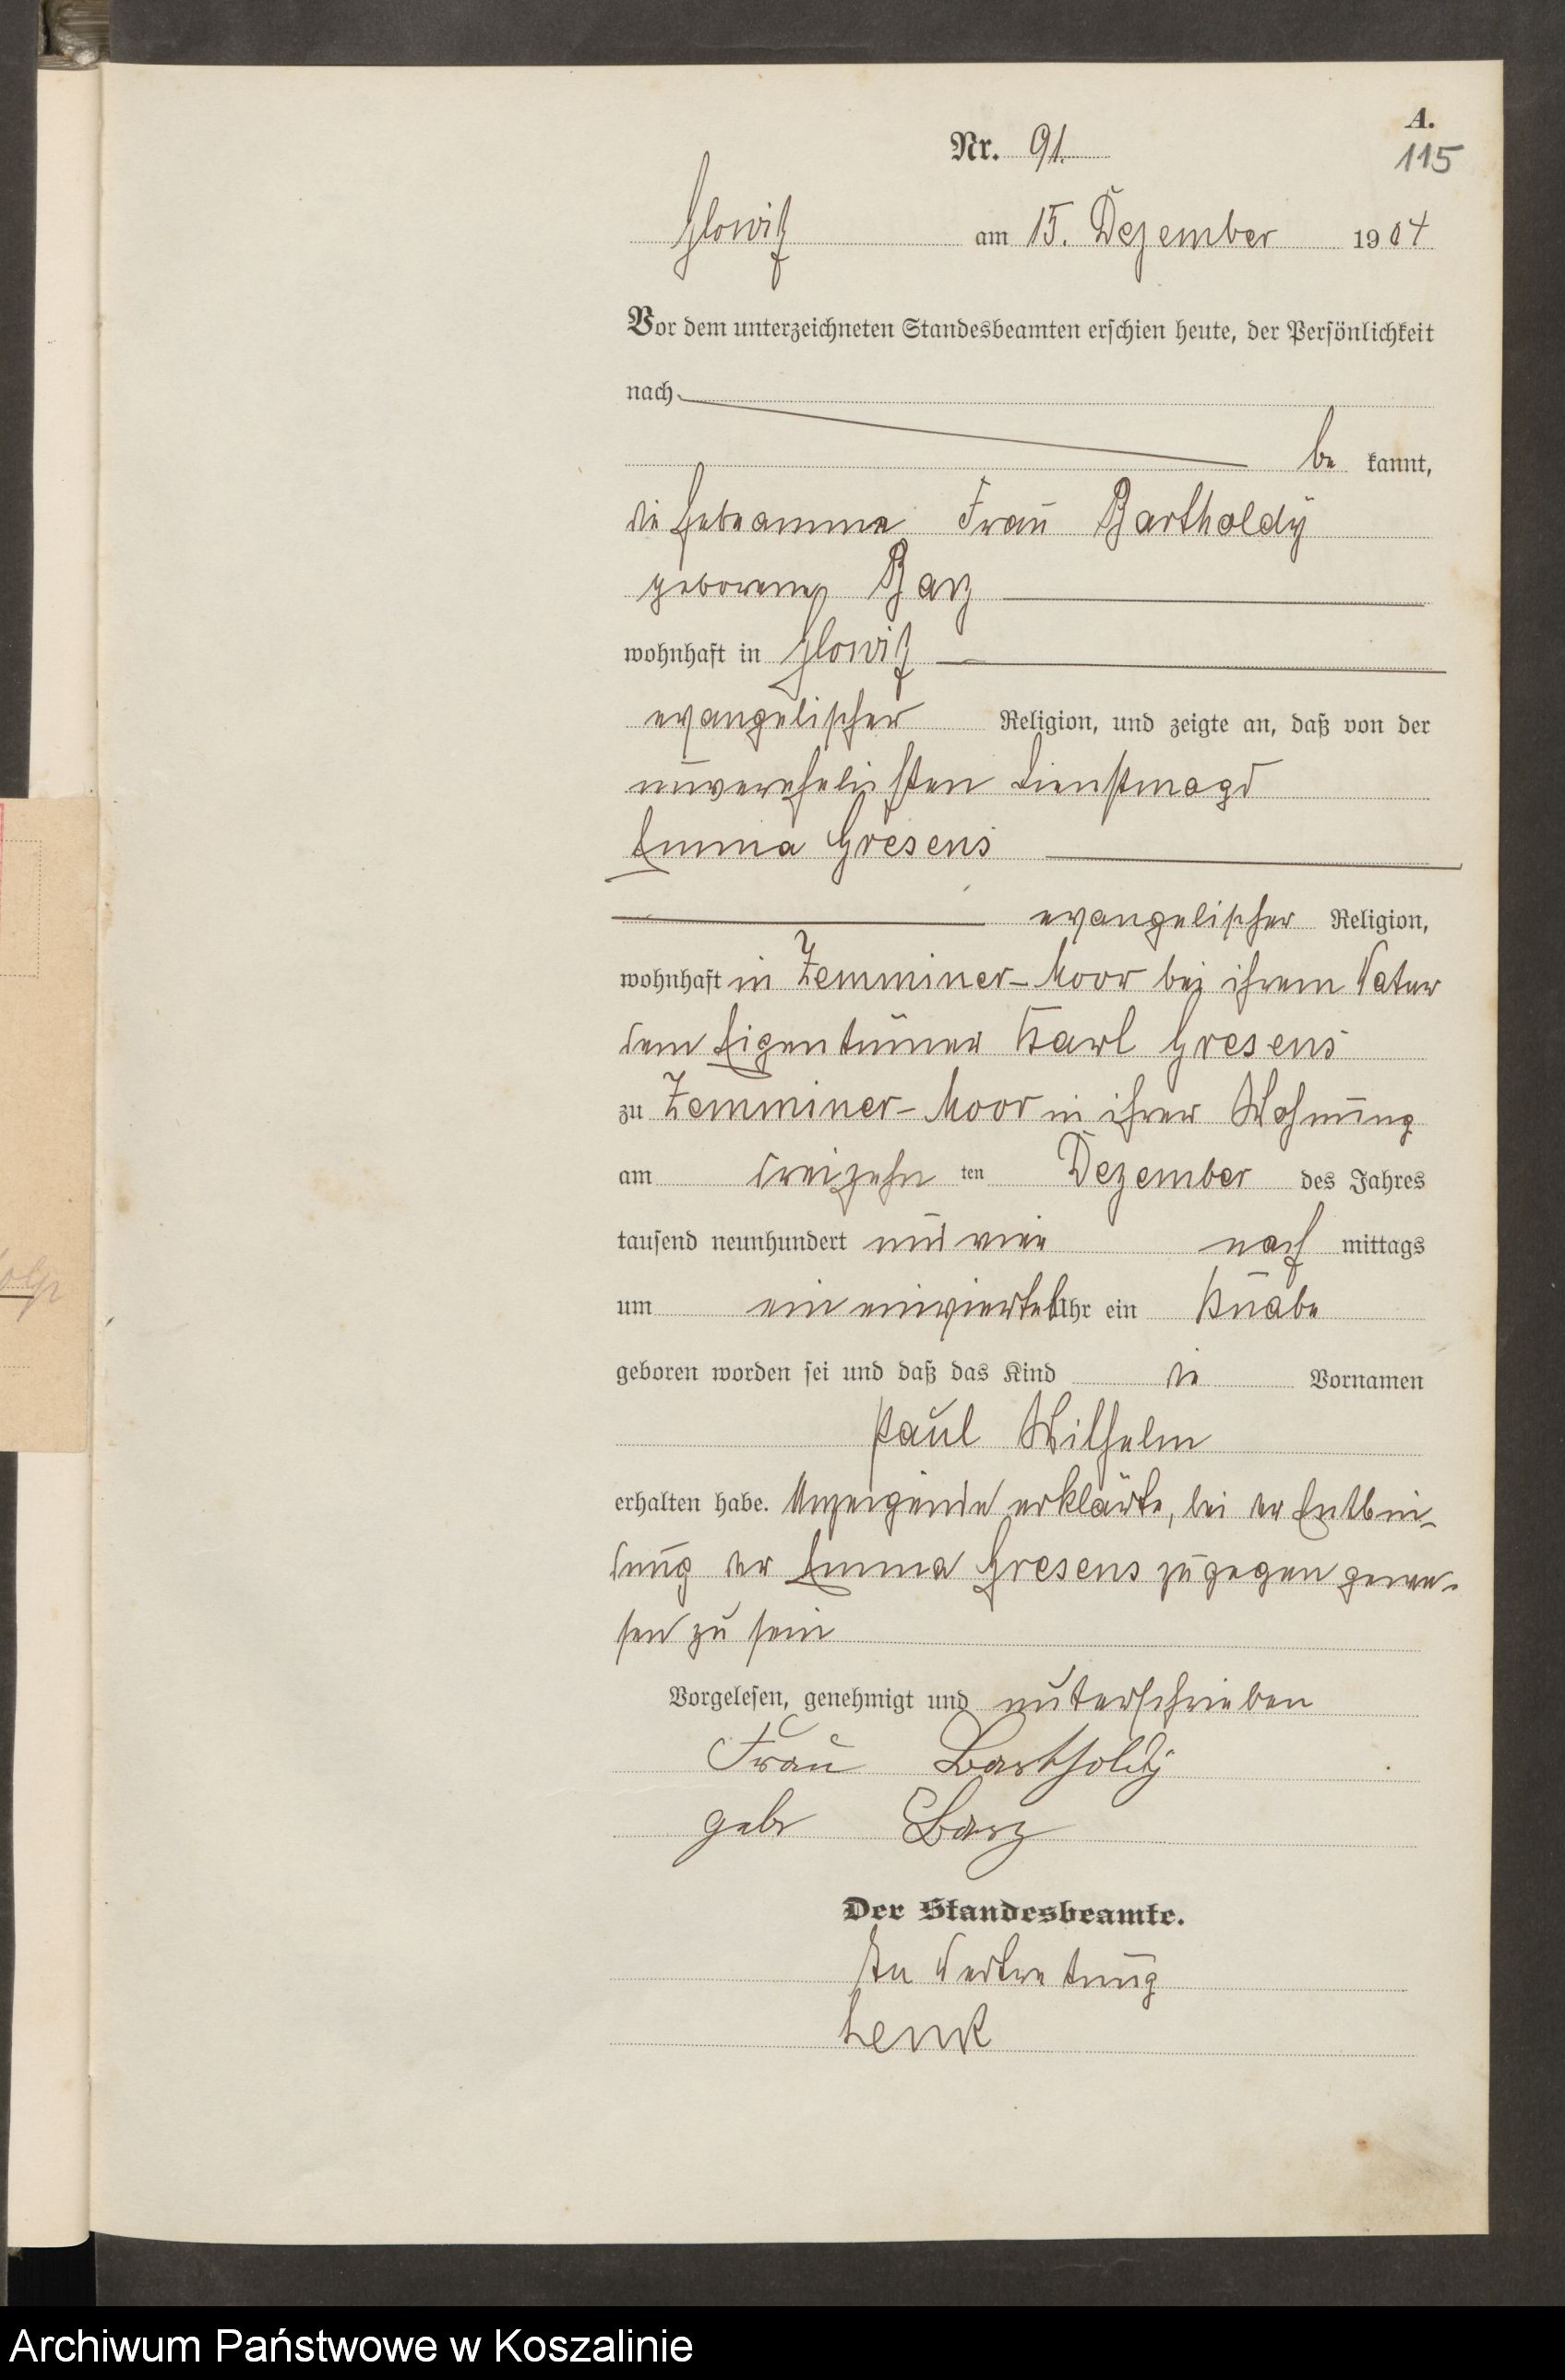 A.
Nr. 91.
115
Glowitz am 15. Dezember 1904
Vor dem unterzeichneten Standesbeamten erschien heute, der Persönlichkeit
nach
be kannt,
die Hebeamme Frau Bartholdy
geborene Barz
wohnhaft in Glowitz
evangelischer Religion, und zeigte an, daß von der
unverehelichten Dienstmagd
Emma Gresens
evangelischer Religion,
wohnhaft in Zemminer-Moor bei ihrem Vater
dem Eigentümer Karl Gresens
zu Zemminer-Moor in ihrer Wohnung
am dreizehn ten Dezember des Jahres
tausend neunhundert und vier nach mittags
um ein einviertel Uhr ein Knabe
geboren worden sei und daß das Kind die Vornamen
Paul Wilhelm
erhalten habe. Anzeigende erklärte, bei der Entbin-
dung der Emma Gresens zugegen gewe-
sen zu sein
Vorgelesen, genehmigt und unterschrieben
Frau Bartholdy
geb Barz
Der Standesbeamte.
In Vertretung
Lenk
Archiwum Państwowe w Koszalinie